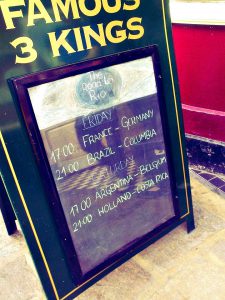 FAMOUS
3 KINGS
The
Road to
Rio
FRIDAY
17:00 FRANCE - GERMANY
21:00 BRAZIL - COLUMBIA
17:00 ARGENTINA - BELGIUM
21:00 HOLLAND - COSTA RICA